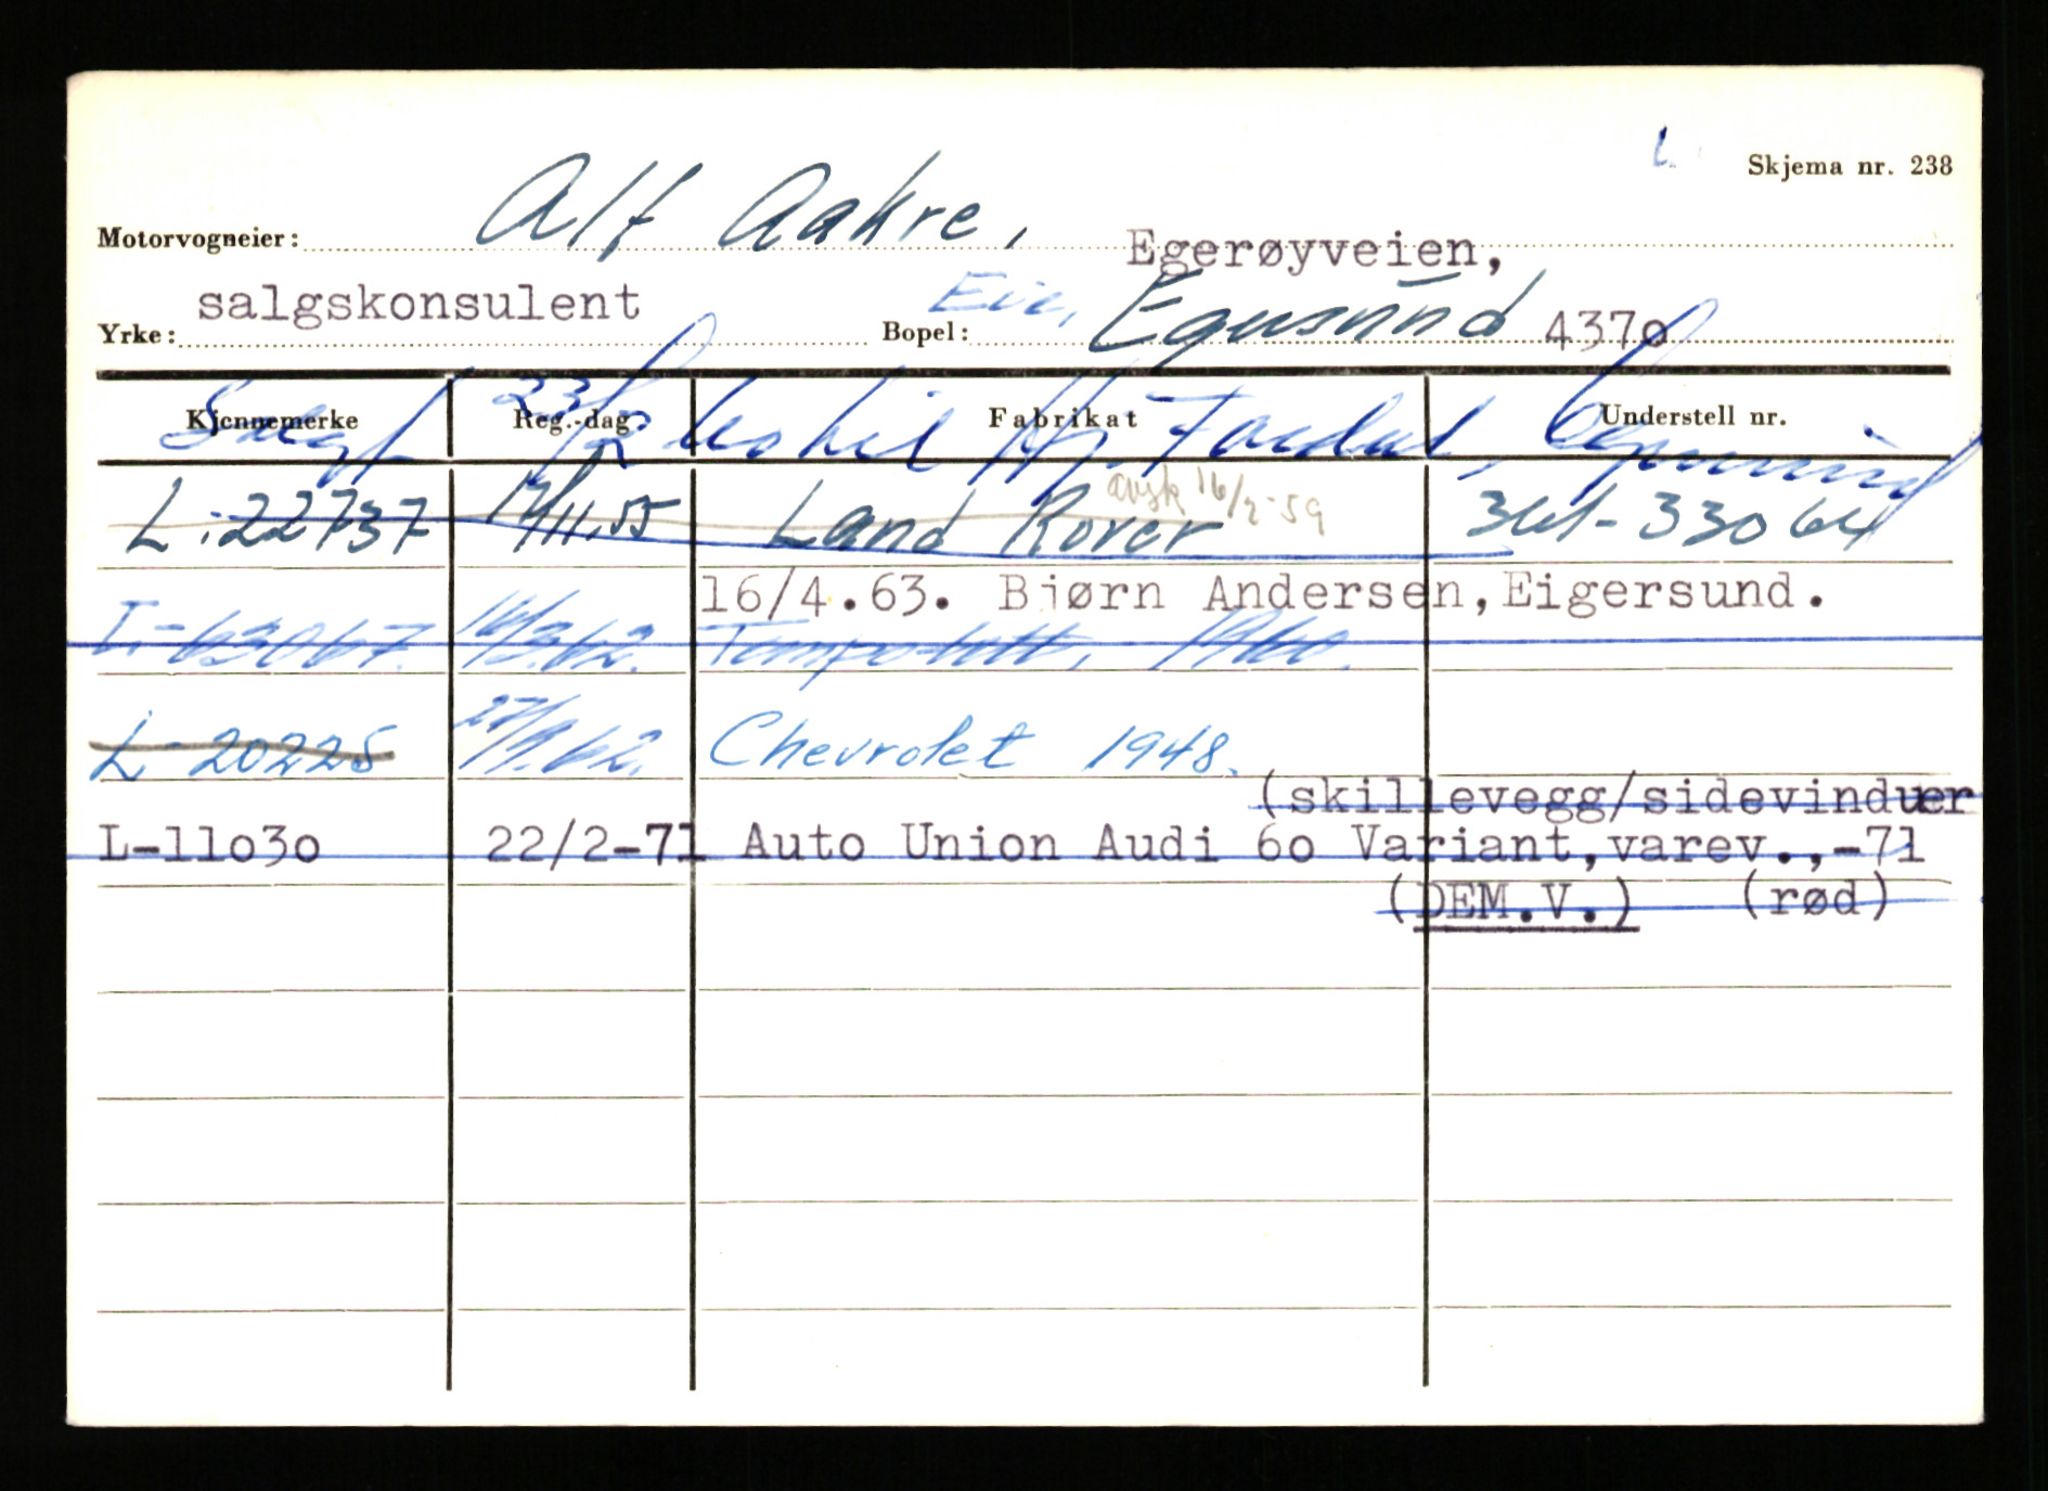 Skjema nr. 238
Motorvogneier: Alf Aakre, Egerøyveien,
Yrke: salgskonsulent Bopel: Eie, Egersund 4370
Kjennemerke Reg.-dag: Fabrikat Understell nr.
Solgt 23/2
L-22737 17/11.55 Land Rover avsk 16/2-59 361-33064
16/4.63. Bjørn Andersen, Eigersund.
L-63067. 16/3.62. Tempo-1960.
L-20225 27/9.62. Chevrolet 1948.
(skillevegg/sidevinduer
L-11030 22/2-71 Auto Union Audi 60 Variant, varev.,-71
(DEM.V.) (rød)